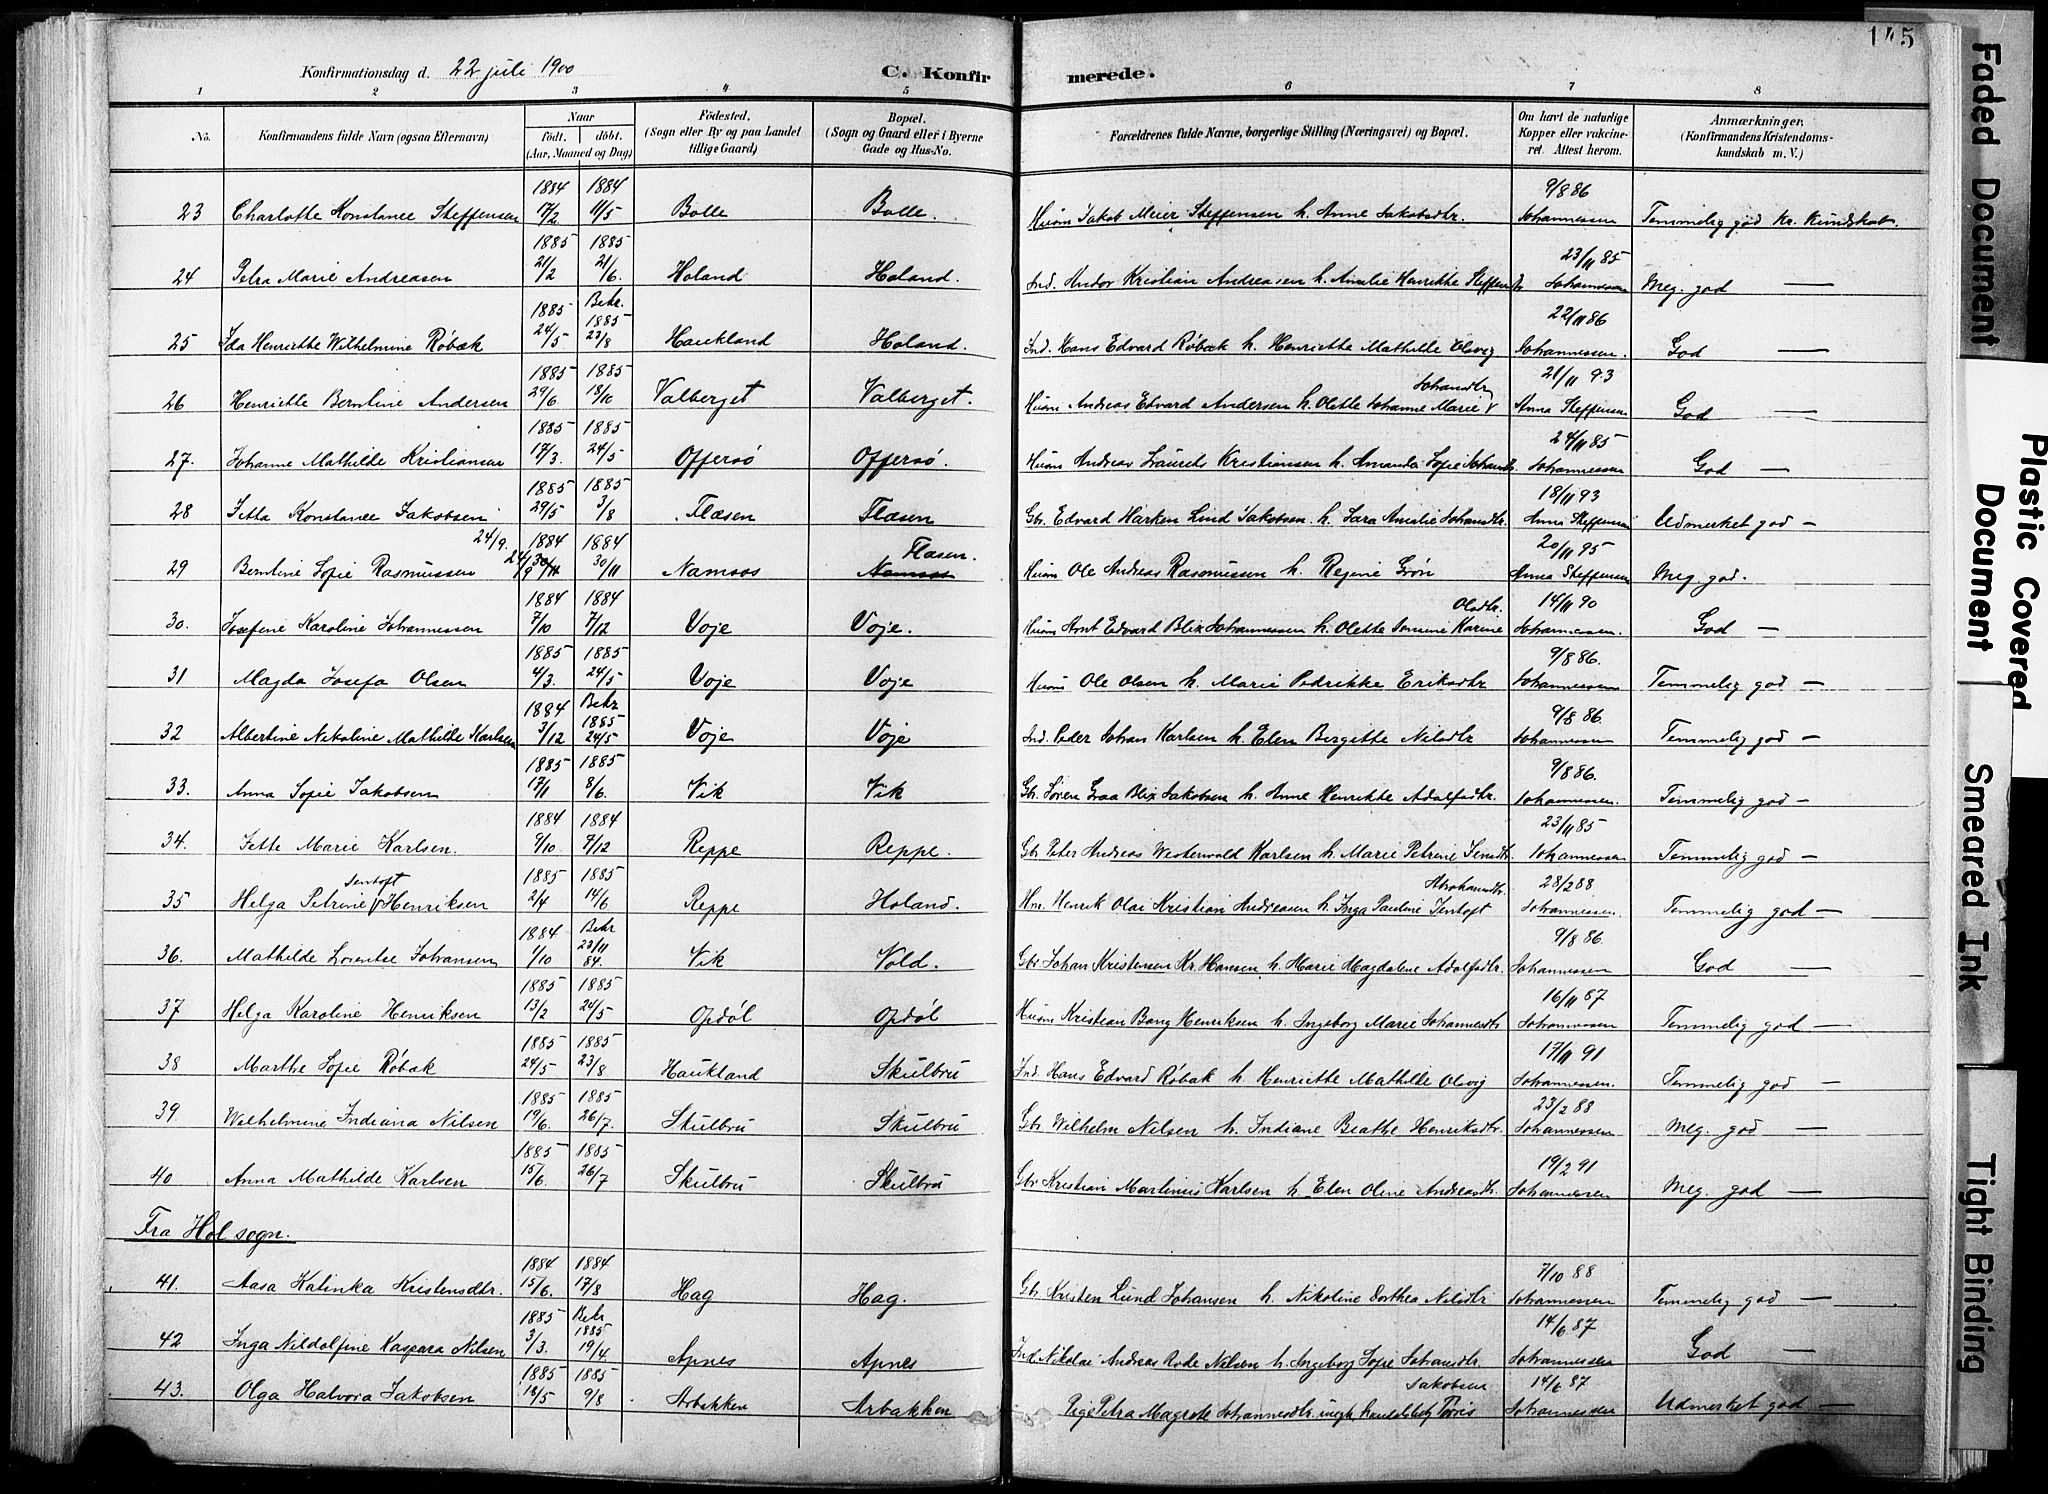 145
Konfirmationsdag d. 22 juli 1900
C. Konfirmerede.
1 2 3 4 5 6 7 8
No. Konfirmandens fulde Navn (ogsaa Efternavn) Naar födt. döbt. (Aar, Maaned og Dag) Födested. (Sogn eller By og paa Landet tillige Gaard) Bopæl. (Sogn og Gaard eller i Byerne Gade og Hus-No. Forældrenes fulde Navne, borgerlige Stilling (Næringsvei) og Bopæl. Om havt de naturlige Kopper eller vakcineret. Attest herom. Anmærkninger. (Konfirmandens Kristendomskundskab m. V.)
23 Charlotte Konstance Steffensen 1884 17/2 1884 11/5 Bolle Bolle. Husm Jakob Meier Steffensen h. Anne Jakobsdtr. 9/8 86 Johannessen Temmelig god kr. kundskab.
24 Petra Marie Andreasen 1885 21/2 1885 21/6. Holand Holand. Ind. Andor Kristian Andreasen h. Amalie Henrikke Steffensdtr 23/11 85 Johannessen Meg. god —
25 Ida Henriette Wilhelmine Röbæk 1885 24/5 Behr. 1885 23/8 Haukland Holand. Ind. Hans Edvard Röbæk h. Henriette Mathilde Olsvig 22/11 86 Johannessen. God —
26 Henriette Berntine Andersen 1885 29/6. 1885 18/10 Valberget Valberget. Husm Andreas Edvard Andersen h. Olette Johanne Marie Johansdtr 21/11 93 Anna Steffensen God —
27. Johanne Mathilde Kristiansen 1885 17/3. 1885 24/5 Offersö Offersö. Husm Andreas Laurits Kristiansen h. Amanda Sofie Johansdtr. 24/11 85 Johannessen God —
28 Jetta Konstance Jakobsen 1885 29/5 1885 3/8 Flæsen Flæsen Gbr. Edvard Harken Lind Jakobsen h. Sara Amalie Johansdtr. 18/11 93 Anna Steffensen Udmerket god —
29 Berntine Sofie Rasmussen 24/9. 1884 24/9 30/11 1884 30/11 Namsos Namsos Flæsen. Husm Ole Andreas Rasmussen h. Regine Grön 20/11 95 Anna Steffensen Meg. god.
30. Josefine Karoline Johannessen 1884 7/10 1884 7/12 Voje Voje. Husm Arnt Edvard Blix Johannessen h. Olette Karine Olsdtr. 14/11 90 Johannessen. God —
31 Magda Josefa Olsen 1885 4/3. 1885 24/5 Voje Voje Husm Ole Olsen h. Marie Pedrikke Eriksdtr 9/8 86. Johannessen Temmelig god —
32 Albertine Nikoline Mathilde Karlsen 1884 3/12 Behr 1885 24/5 Voje Voje Ind. Peder Johan Karlsen h. Elen Birgitte Nilsdtr 9/8 86. Johannessen Temmelig god —
33. Anna Sofie Jakobsen 1885 17/1 1885 8/6. Vik Vik Gbr. Sören Graa Blix Jakobsen h. Anne Henrikke Adolfsdtr. 9/8 86. Johannessen. Temmelig god —
34. Jette Marie Karlsen. 1884 9/10 1884 7/12 Reppe Reppe. Gbr Peter Andreas Westerwold Karlsen h. Marie Petrine Jensdtr. 23/11 85 Johannessen Temmelig god —
35 Helga Petrine Jentoft Henriksen 1885 2/4 1885 14/6 Reppe Holand. Hm. Henrik Olai Kristian Andreasen h. Inga Pauline Jentoft Abrahamsdtr. 28/2 88 Johannessen. Temmelig god —
36. Mathilde Lorentse Johansen 1884 1/10 Behr 23/11 84. Vik Vold. Gbr Johan Kristensen Kr. Hansen h. Marie Magdalene Adolfsdtr. 9/8 86. Johannessen God —
37 Helga Karoline Henriksen 1885 13/2 1885 24/5 Opdöl Opdöl Husm Kristian Bang Henriksen h. Ingeborg Marie Johannesdtr 16/11 87 Johannessen Temmelig god —
38 Marthe Sofie Röbæk 1885 24/5 1885 23/8 Haukland Skulbru Ind. Hans Edvard Röbæk h. Henriette Mathilde Olsvig 17/11 91 Johannessen. Temmelig god —
39 Wilhelmine Indiana Nilsen 1885 19/6. 1885 26/7 Skulbru Skulbru Gbr Wilhelm Nilsen h. Indiane Beathe Henriksdtr. 23/2 88 Johannessen Meg. god —
40 Anna Mathilde Karlsen 1885 15/6. 1885 26/7 Skulbru Skulbru Gbr Kristian Martinus Karlsen h. Elen Oline Andreasdtr. 19/2 91 Johannessen Meg. god —
Fra Hol sogn.
41. Aasa Katinka Kristensdtr. 1884 15/6. 1884 17/8 Hag Hag. Gbr Kristen Lund Johansen h. Nikoline Dorthea Nilsdtr 7/10 88 Johannessen Temmelig god —
42 Inga Nildolfine Kaspara Nilsen 1885 3/3. Behr 1885 19/4 Apnes Apnes Ind. Nikolai Andreas Rode Nilsen h. Ingeborg Sofie Johansdtr. 14/6 87 Johannessen God —
43. Olga Halvora Jakobsen 1885 18/5 1885 9/8 Arbakken Arbakken Pige Petra Magrete Johannesdtr. ungk. Jakobsen 14/6 87 Johannessen Udmerket god —
Faded Document
Plastic Covered Document
Smeared Ink
Tight Binding